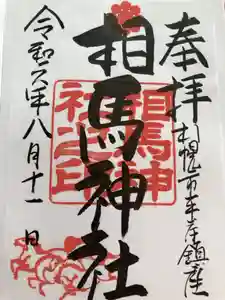 奉拝
札幌市平岸鎮座
相馬神社
相馬神社之印
令和六年八月十一日